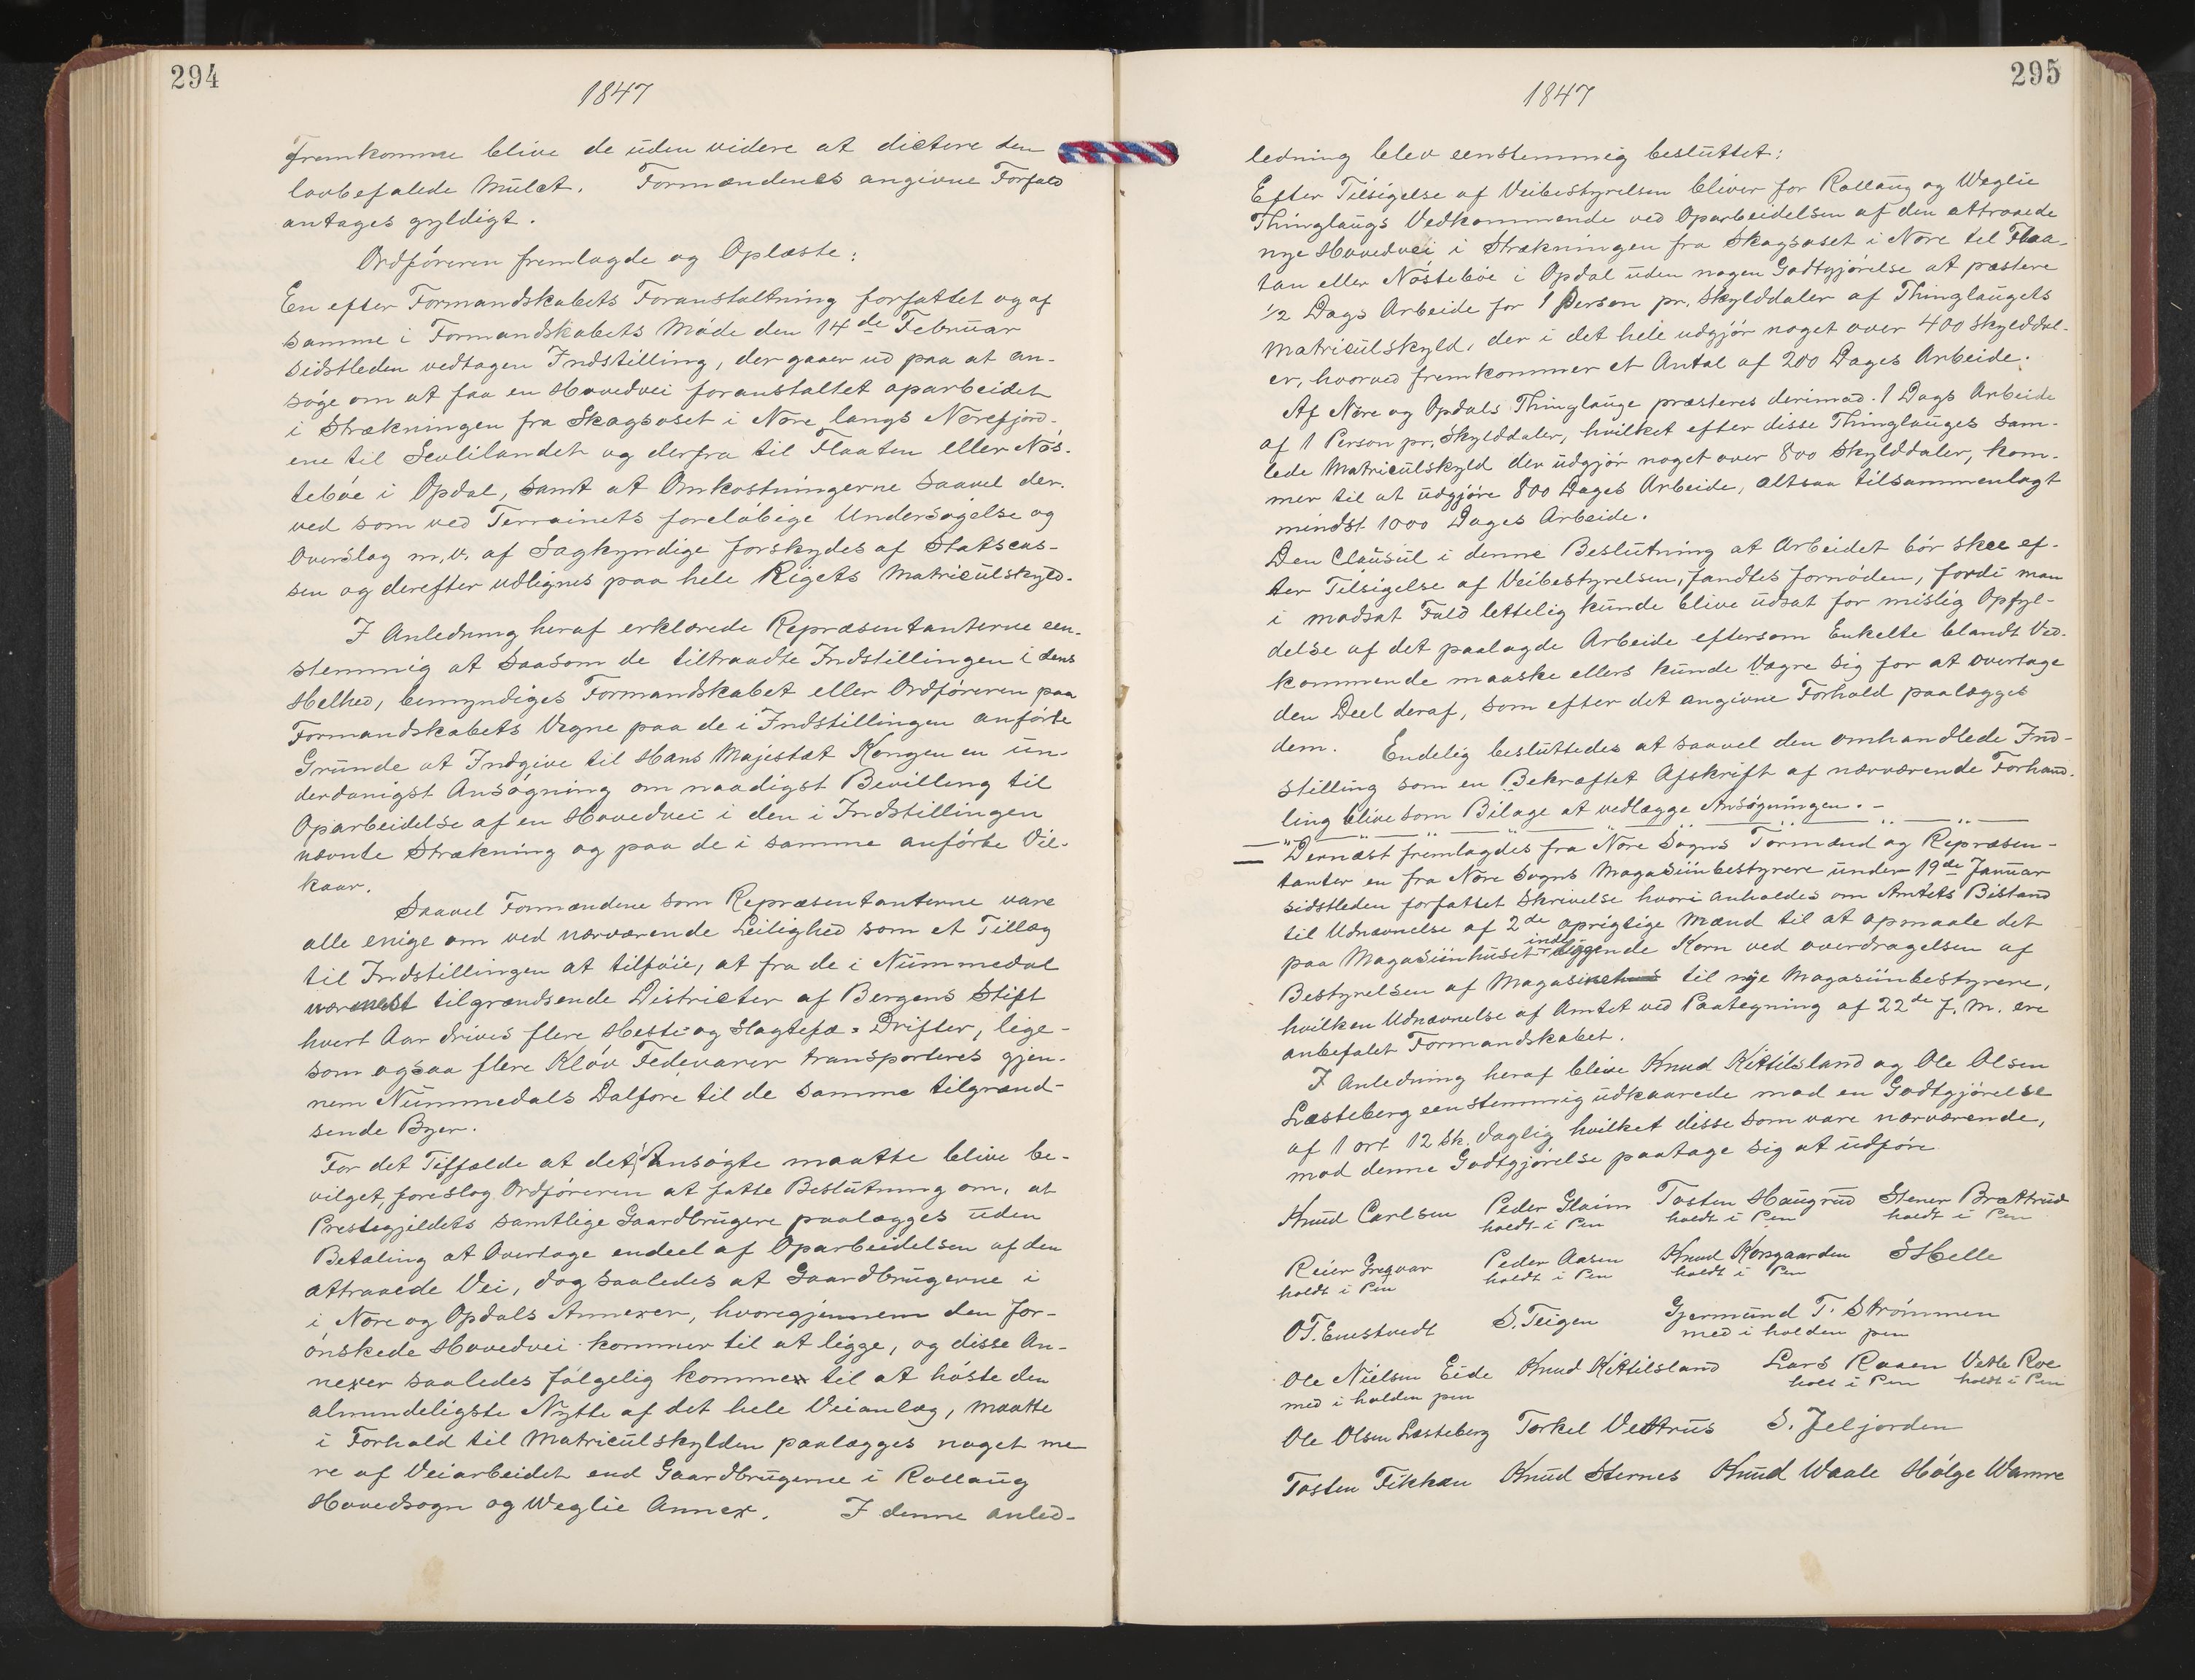 294
1847
Fremkomme blive de uden videre at dictere den
lovbefalede Mulct. Formændenes angivne Forfald
antages gyldigt.
Ordføreren fremlagde og Oplæste:
En efter Formandskabets Foranstaltning forfattet og af
samme i Formandskabets Møde den 14de Februar
sidstleden vedtagen Indstilling, der gaaer ud paa at an-
søge om at faa en Hovedvei foranstaltet oparbeidet
i Strækningen fra Skagsoset i Nore langs Norefjord-
ene til Sevlilandet og derfra til Flaaten eller Nøs-
tebøe i Opdal, samt at Omkostningerne saavel der-
ved som ved Terrainets foreløbige Undersøgelse og
Overslag m.v. af Sagkyndige forskydes af Statscas-
sen og derefter udlignes paa hele Rigets Matriculskyld.
I Anledning heraf erklærede Repræsentanterne een-
stemmig at saasom de tiltraadte Indstillingen i dens
Helhed, bemyndiges Formandskabet eller Ordføreren paa
Formandskabets Vegne paa de i Indstillingen anførte
Grunde at Indgive til Hans Majestæt Kongen en un-
derdanigst Ansøgning om naadigst Bevilling til
Oparbeidelse af en Hovedvei i den i Indstillingen
nævnte Strækning og paa de i samme anførte Vil-
kaar.
Saavel Formændene som Repræsentanterne vare
alle enige om ved nærværende Leilighed som et Tillæg
til Indstillingen at tilføie, at fra de i Nummedal
nærmest tilgrændsende Districter af Bergens Stift
hvert Aar drives flere Heste og Slagtefæ-Drifter, lige-
som ogsaa flere Kløv Fedevarer transporteres gjen-
nem Nummedals Dalføre til de samme tilgrænd-
sende Byer.
For det Tilfælde at det Ansøgte maatte blive be-
vilget, foreslog Ordføreren at fatte Beslutning om, at
Prestegjeldets samtlige Gaardbrugere paalægges uden
Betaling at Overtage endeel af Oparbeidelsen af den
attraaede Vei, dog saaledes at Gaardbrugerne i
i Nore og Opdals Annexer, hvoregjennem den for-
ønskede Hovedvei kommer til at ligge, og disse An-
nexer saaledes følgelig kommer til at høste den
almindeligste Nytte af det hele Veianlæg, maatte
i Forhold til Matriculskylden paalægges noget me
re af Veiarbeidet end Gaardbrugerne i Rollaug
Hovedsogn og Weglie Annex. I denne anled-
295
1847
ledning blev eenstemmig besluttet:
Efter Tilsigelse af Veibestyrelsen bliver for Rollaug og Weglie
Thinglaugs Vedkommende ved Oparbeidelsen af den attraaede
nye Hovedvei i Strækningen fra Skagsoset i Nore til Flaa-
tan eller Nøstebøe i Opdal uden nogen Godtgjørelse at præstere
1/2 Dags Arbeide for 1 Person pr. Skylddaler af Thinglaugets
Matriculskyld, der i det hele udgjør noget over 400 Skylddal-
er, hvorved fremkommer et Antal af 200 Dages Arbeide.
Af Nore og Opdals Thinglauge præsteres derimod 1 Dags Arbeide
af 1 Person pr. Skylddaler, hvilket efter disse Thinglauges sam-
lede Matriculskyld der udgjør noget over 800 Skylddaler, kom-
mer til at udgjøre 800 Dages Arbeide, altsaa tilsammenlagt
mindst 1000 Dages Arbeide.
Den Clausul i denne Beslutning at Arbeidet bør skee ef-
ter Tilsigelse af Veibestyrelsen, fandtes fornøden, fordi man
i modsat Fald lettelig kunde blive udsat for mislig Opfyl-
delse af det paalagde Arbeide eftersom Enkelte blandt Ved-
kommende maaske ellers kunde Vægre sig for at overtage
den Deel deraf, som efter det angivne Forhold paalægges
dem. Endelig besluttedes at saavel den omhandlede Ind-
stilling som en Bekræftet Afskrift af nærværende Forhand-
ling blive som Bilage at vedlægge Ansøgningen. –
Dernæst fremlagdes fra Nore Sogns Formænd og Repræsen-
tanter en fra Nore Sogns Magasiinbestyrere under 19de Januar
sidstleden forfattet Skrivelse hvori anholdes om Amtets Bistand
til Udnævnelse af 2de oprigtige Mænd til at opmaale det
paa Magasiinhuset indeliggende Korn ved overdragelsen af
Bestyrelsen af Magasinet til nye Magasiinbestyrere,
hvilken Udnævnelse af Amtet ved Paategning af 22de f. M. ere
anbefalet Formandskabet.
I Anledning heraf bleve Knud Kittilsland og Ole Olsen
Læsteberg eenstemmig udkaarede mod en Godtgjørelse
af 1 ort 12 sk. daglig hvilket disse som vare nærværende,
mod denne Godtgjørelse paatage sig at udføre
Knud Carlsen Peder Glaim Tosten Haugrud Stener Brattrud
holdt i Pen holdt i Pen holdt i Pen
Reier Gregvar Peder Aasen Knud Korsgaarden S Helle
holdt i Pen holdt i Pen holdt i Pen
O T. Enestvedt S. Teigen Gjermund T. Strømmen
med i holden pen
Ole Nielsen Eide Knud Kittilsland Lars Raaen Vetle Roe
med i holden pen holt i Pen holdt i Pen
Ole Olsen Læsteberg Torkel Vettrus S. Jeljorden
Tosten Fikkan Knud Sternes Knud Waale Hølge Wamre